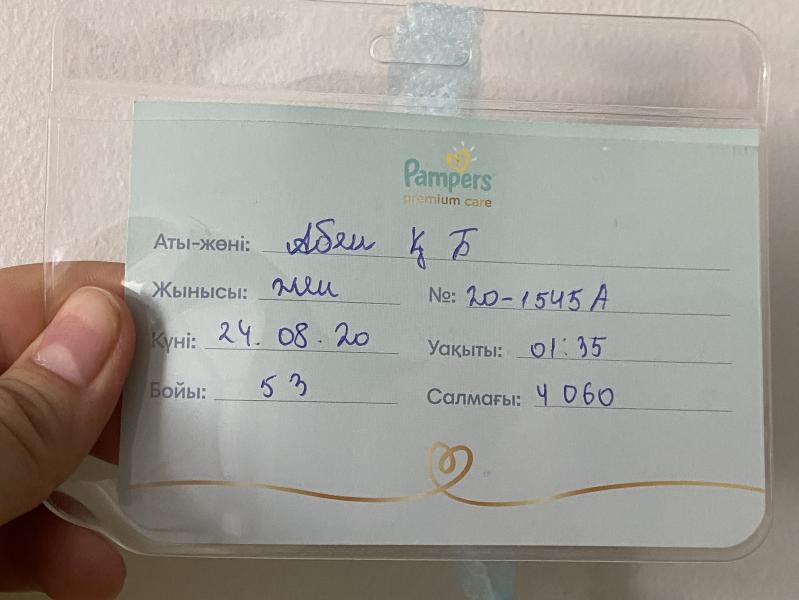 Pampers
premium care
Аты-жөні: Абен Қ Б
Жынысы: жен
№: 20-1545 А
Күні: 24. 08. 20
Уақыты: 01:35
Бойы: 53
Салмағы: 4 060